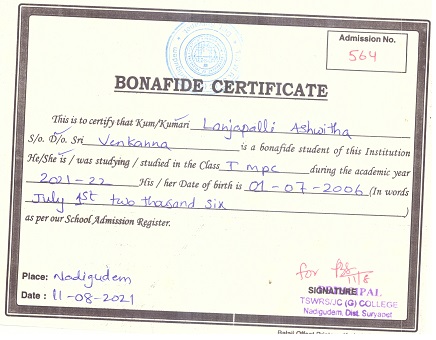 Admission No.
564
BONAFIDE CERTIFICATE
This is to certify that Kum/Kumari Lanjapalli Ashwitha
S/o. D/o. Sri Venkanna is a bonafide student of this Institution
He/She is / was studying / studied in the Class I mpc during the academic year
2021-22 His / her Date of birth is 01-07-2006 (In words
July 1st two thousand six )
as per our School Admission Register.
Place: Nadigudem
Date : 11-08-2021
for
SIGNATURE
PRINCIPAL
TSWRS/JC (G) COLLEGE
Nadigudem, Dist. Suryapet